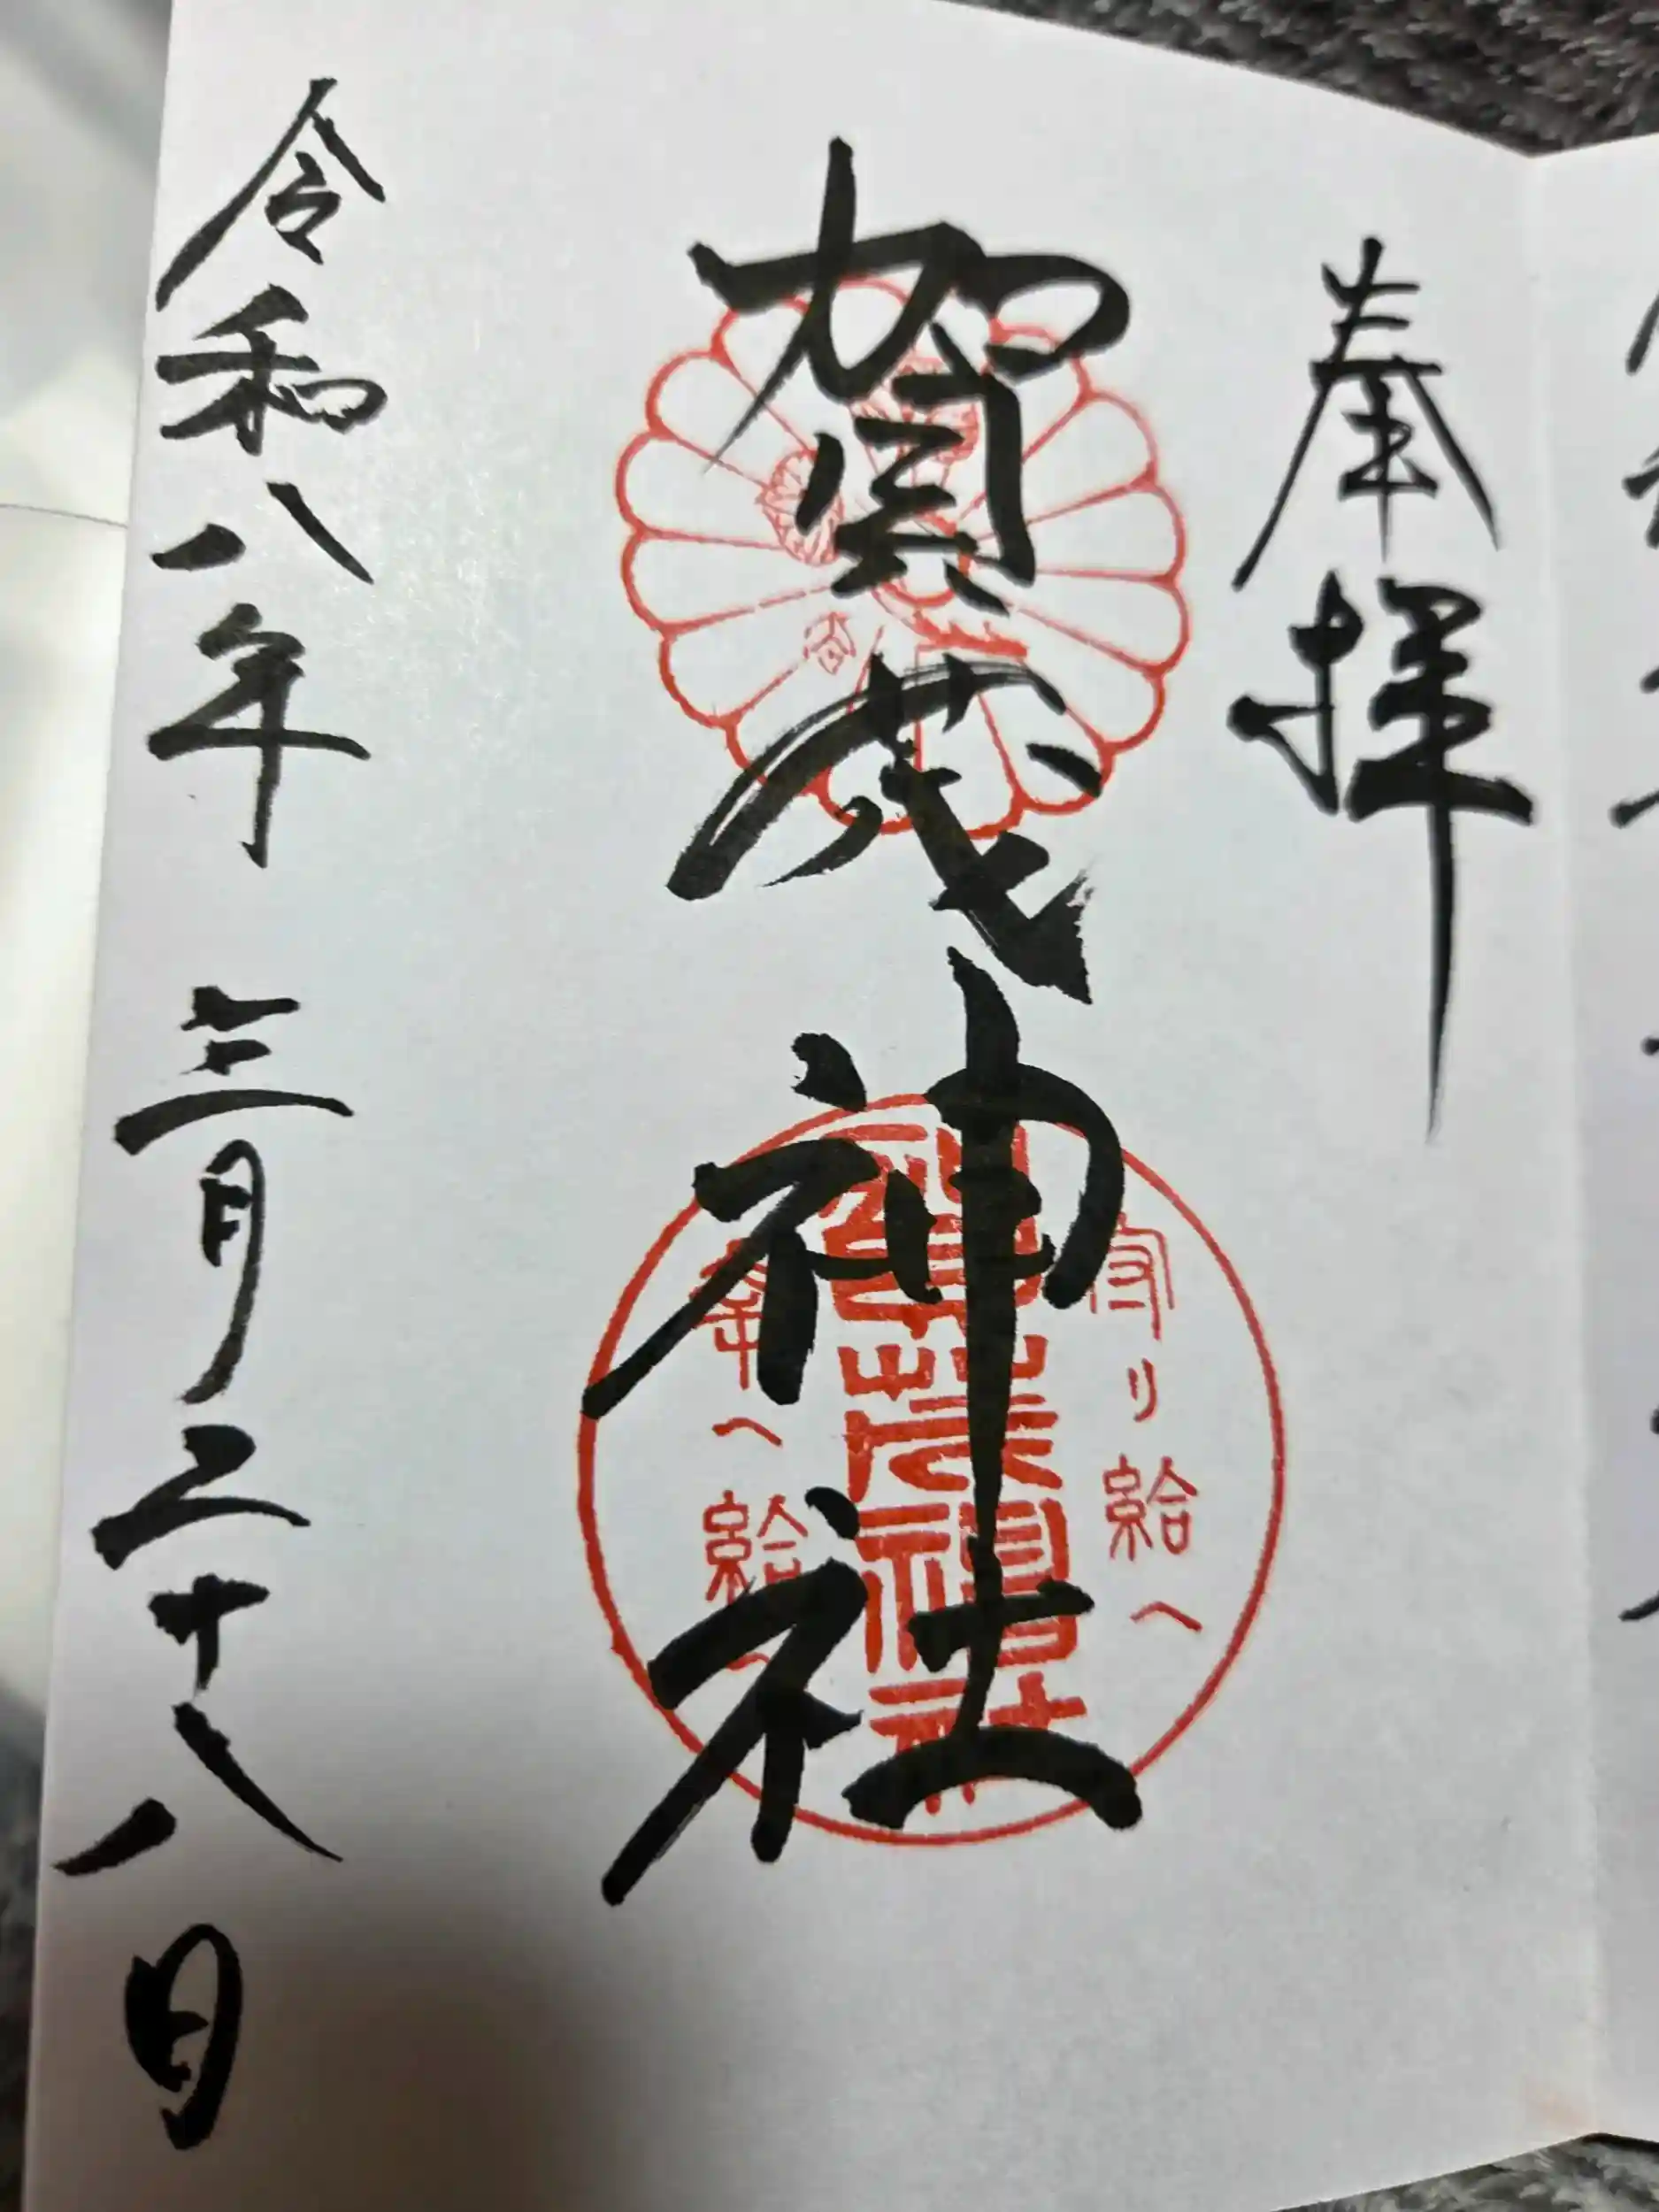 奉拝
賀茂神社
守リ給へ
幸へ給へ
令和八年 三月二十八日